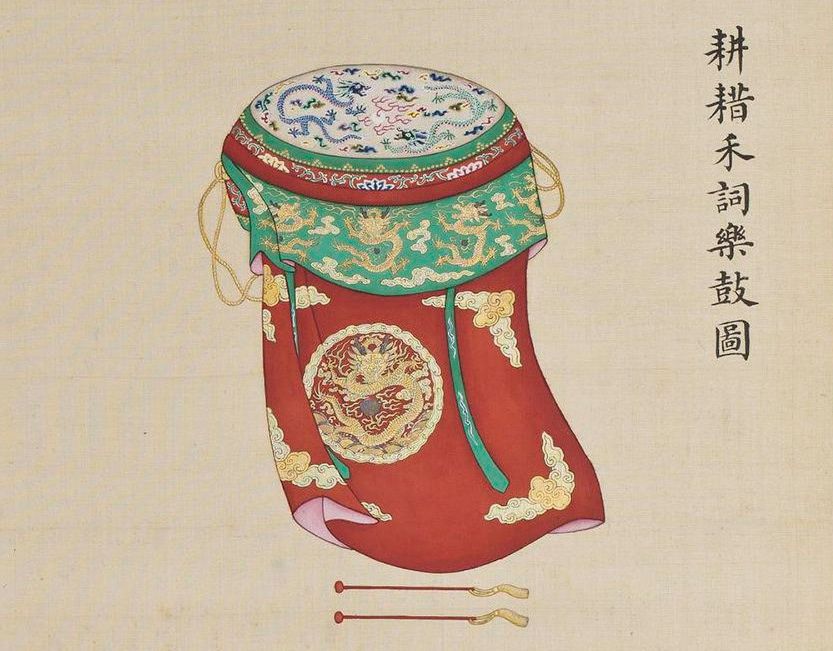 耕耤禾詞樂鼓圖